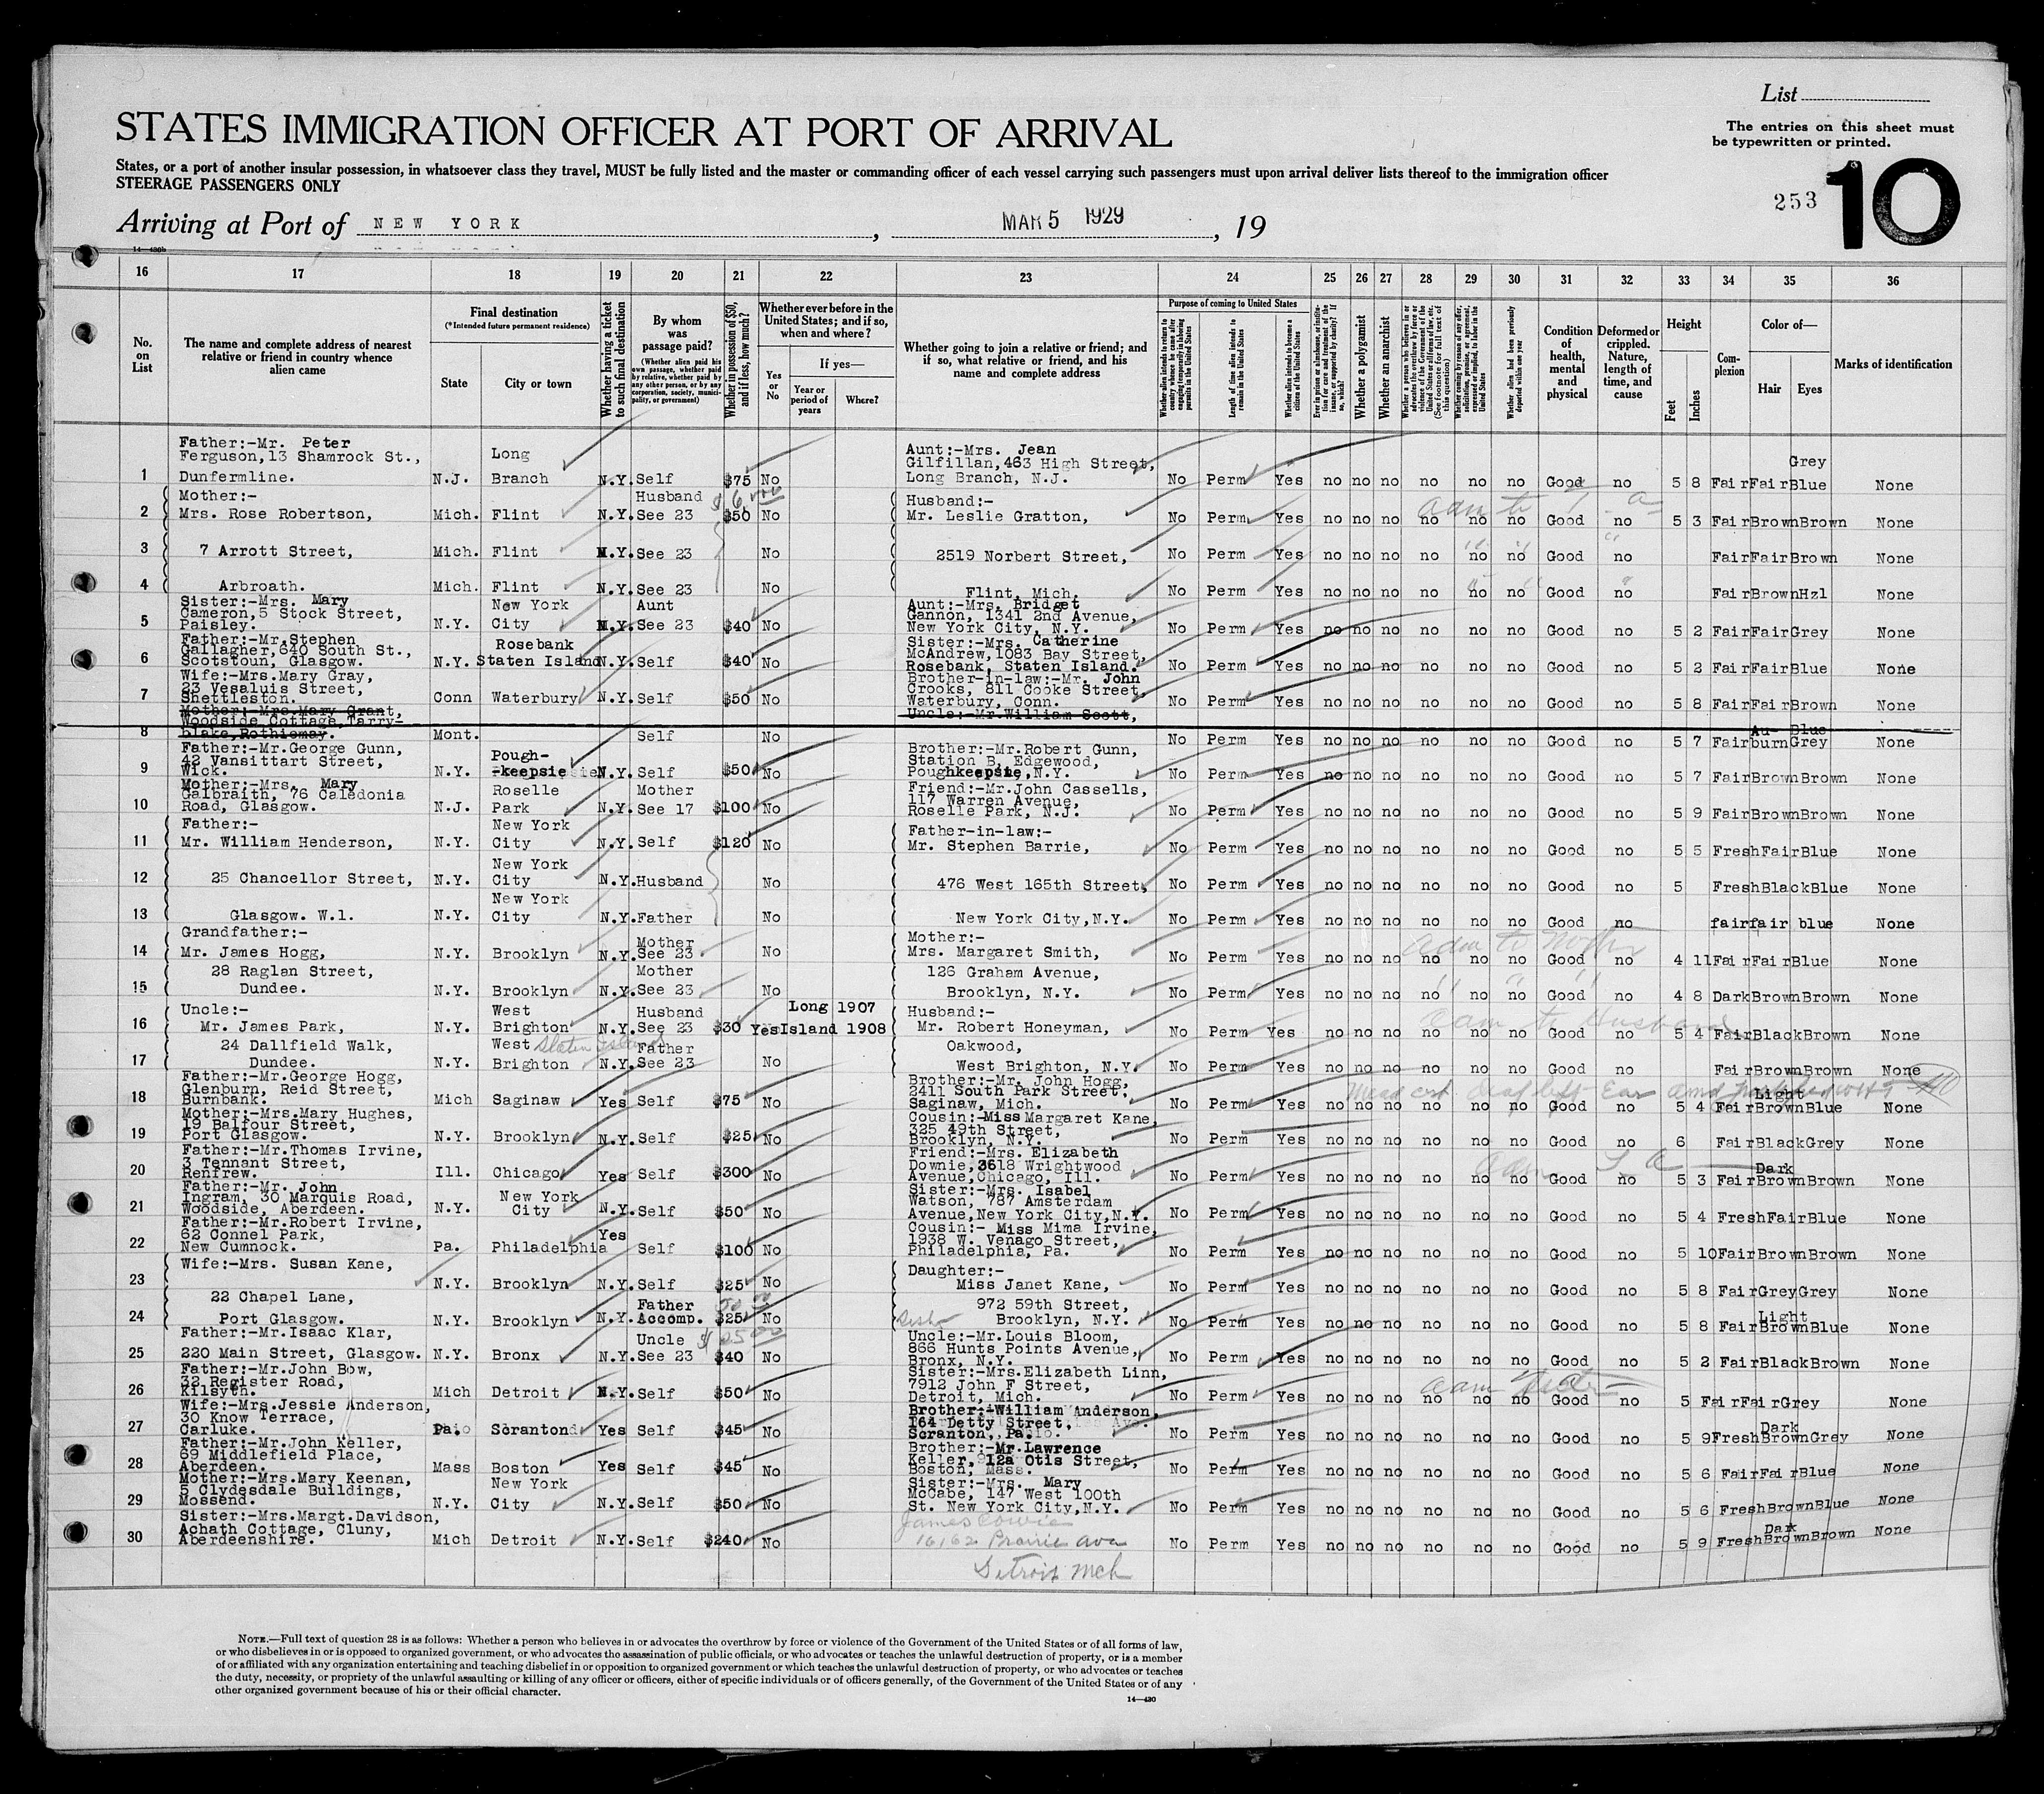 List
STATES IMMIGRATION OFFICER AT PORT OF ARRIVAL
The entries on this sheet must
be typewritten or printed.
States, or a port of another insular possession, in whatsoever class they travel, MUST be fully listed and the master or commanding officer of each vessel carrying such passengers must upon arrival deliver lists thereof to the immigration officer
STEERAGE PASSENGERS ONLY
253 10
Arriving at Port of NEW YORK, MAR 5 1929, 19
14—430b
16 17 18 19 20 21 22 23 24 25 26 27 28 29 30 31 32 33 34 35 36
No. on List
The name and complete address of nearest relative or friend in country whence alien came
Final destination
(*Intended future permanent residence)
State
City or town
Whether having a ticket to such final destination
By whom was passage paid?
(Whether alien paid his own passage, whether paid by relative, whether paid by any other person, or by any corporation, society, municipality, or government)
Whether in possession of $50, and if less, how much?
Whether ever before in the United States; and if so, when and where?
Yes or No
If yes—
Year or period of years
Where?
Whether going to join a relative or friend; and if so, what relative or friend, and his name and complete address
Purpose of coming to United States
Whether alien intends to return to country whence he came after engaging temporarily in laboring pursuits in the United States
Length of time alien intends to remain in the United States
Whether alien intends to become a citizen of the United States
Ever in prison or almshouse, or institution for care and treatment of the insane, or supported by charity? If so, which?
Whether a polygamist
Whether an anarchist
Whether a person who believes in or advocates the overthrow by force or violence of the Government of the United States or all forms of law, etc. (See footnote for full text of this question)
Whether coming by reason of any offer, solicitation, promise, or agreement, expressed or implied, to labor in the United States
Whether alien had been previously deported within one year
Condition of health, mental and physical
Deformed or crippled. Nature, length of time, and cause
Height
Feet
Inches
Complexion
Color of—
Hair
Eyes
Marks of identification
1 Father:-Mr. Peter Ferguson,13 Shamrock St., Dunfermline. N.J. Long Branch N.Y. Self $75 No Aunt:-Mrs. Jean Gilfillan,463 High Street, Long Branch, N.J. No Perm Yes no no no no no no Good no 5 8 Fair Fair Grey Blue None
2 Mother:- Mrs. Rose Robertson, Mich. Flint N.Y. Husband See 23 $50 No Husband:- Mr. Leslie Gratton, No Perm Yes no no no no no no Good no 5 3 Fair Brown Brown None
3 7 Arrott Street, Mich. Flint N.Y. See 23 No 2519 Norbert Street, No Perm Yes no no no no no no Good no Fair Fair Brown None
4 Arbroath. Mich. Flint N.Y. See 23 No Flint, Mich. No Perm Yes no no no no no no Good no Fair Brown Hzl None
5 Sister:-Mrs. Mary Cameron,5 Stock Street, Paisley. N.Y. New York City N.Y. Aunt See 23 $40 No Aunt:-Mrs. Bridget Gannon, 1341 2nd Avenue, New York City, N.Y. No Perm Yes no no no no no no Good no 5 2 Fair Fair Grey None
6 Father:-Mr.Stephen Gallagher,640 South St., Scotstoun, Glasgow. N.Y. Rosebank Staten Island N.Y. Self $40 No Sister:-Mrs. Catherine McAndrew,1083 Bay Street, Rosebank, Staten Island. No Perm Yes no no no no no no Good no 5 2 Fair Fair Blue None
7 Wife:-Mrs.Mary Gray, 23 Vesaluis Street, Shettleston. Conn Waterbury N.Y. Self $50 No Brother-in-law:-Mr. John Crooks, 811 Cooke Street, Waterbury, Conn. No Perm Yes no no no no no no Good no 5 8 Fair Fair Brown None
8 Mother:-Mrs.Mary Grant, Woodside Cottage,Tarry-blake,Rothiemay. Mont. Self No Uncle:-Mr.William Scott, No Perm Yes no no no no no no Good no 5 7 Fair Au-burn Blue Grey None
9 Father:-Mr.George Gunn, 42 Vansittart Street, Wick. N.Y. Pough- -keepsie N.Y. Self $50 No Brother:-Mr.Robert Gunn, Station B, Edgewood, Poughkeepsie,N.Y. No Perm Yes no no no no no no Good no 5 7 Fair Brown Brown None
10 Mother:-Mrs. Mary Galbraith, 76 Caledonia Road, Glasgow. N.J. Roselle Park N.Y. Mother See 17 $100 No Friend:-Mr.John Cassells, 117 Warren Avenue, Roselle Park, N.J. No Perm Yes no no no no no no Good no 5 9 Fair Brown Brown None
11 Father:- Mr. William Henderson, N.Y. New York City N.Y. Self $120 No Father-in-law:- Mr. Stephen Barrie, No Perm Yes no no no no no no Good no 5 5 Fresh Fair Blue None
12 25 Chancellor Street, N.Y. New York City N.Y. Husband No 476 West 165th Street, No Perm Yes no no no no no no Good no 5 Fresh Black Blue None
13 Glasgow. W.1. N.Y. New York City N.Y. Father No New York City,N.Y. No Perm Yes no no no no no no Good no fair fair blue None
14 Grandfather:- Mr. James Hogg, N.Y. Brooklyn N.Y. Mother See 23 No Mother:- Mrs. Margaret Smith, No Perm Yes no no no no no no Good no 4 11 Fair Fair Blue None
15 28 Raglan Street, Dundee. N.Y. Brooklyn N.Y. Mother See 23 No 126 Graham Avenue, Brooklyn, N.Y. No Perm Yes no no no no no no Good no 4 8 Dark Brown Brown None
16 Uncle:- Mr. James Park, N.Y. West Brighton N.Y. Husband See 23 $30 Yes Long Island 1907 1908 Husband:- Mr. Robert Honeyman, No Perm Yes no no no no no no Good no 5 4 Fair Black Brown None
17 24 Dallfield Walk, Dundee. N.Y. West Brighton Staten Island N.Y. Father See 23 No Oakwood, West Brighton, N.Y. No Perm Yes no no no no no no Good no Fair Brown Brown None
18 Father:-Mr.George Hogg, Glenburn, Reid Street, Burnbank. Mich Saginaw Yes Self $75 No Brother:-Mr. John Hogg, 2411 South Park Street, Saginaw, Mich. No Perm Yes no no no no no no Good no 5 4 Fair Light Brown Blue None
19 Mother:-Mrs.Mary Hughes, 19 Balfour Street, Port Glasgow. N.Y. Brooklyn N.Y. Self $25 No Cousin:-Miss Margaret Kane, 325 49th Street, Brooklyn, N.Y. No Perm Yes no no no no no no Good no 6 Fair Black Grey None
20 Father:-Mr.Thomas Irvine, 3 Tennant Street, Renfrew. Ill. Chicago Yes Self $300 No Friend:-Mrs. Elizabeth Downie,3618 Wrightwood Avenue,Chicago, Ill. No Perm Yes no no no no no no Good no 5 3 Fair Dark Brown Brown None
21 Father:-Mr. John Ingram, 30 Marquis Road, Woodside, Aberdeen. N.Y. New York City N.Y. Self $50 No Sister:-Mrs. Isabel Watson, 787 Amsterdam Avenue,New York City,N.Y. No Perm Yes no no no no no no Good no 5 4 Fresh Fair Blue None
22 Father:-Mr.Robert Irvine, 62 Connel Park, New Cumnock. Pa. Philadelphia Yes Self $100 No Cousin:- Miss Mima Irvine, 1938 W. Venago Street, Philadelphia, Pa. No Perm Yes no no no no no no Good no 5 10 Fair Brown Brown None
23 Wife:-Mrs. Susan Kane, N.Y. Brooklyn N.Y. Self $25 No Daughter:- Miss Janet Kane, No Perm Yes no no no no no no Good no 5 8 Fair Grey Grey None
24 22 Chapel Lane, Port Glasgow. N.Y. Brooklyn N.Y. Father Accomp. $25 No 972 59th Street, Brooklyn, N.Y. No Perm Yes no no no no no no Good no 5 8 Fair Light Brown Blue None
25 Father:-Mr.Isaac Klar, 220 Main Street, Glasgow. N.Y. Bronx N.Y. Uncle See 23 $40 No Uncle:-Mr.Louis Bloom, 866 Hunts Points Avenue, Bronx, N.Y. No Perm Yes no no no no no no Good no 5 2 Fair Black Brown None
26 Father:-Mr.John Bow, 32 Register Road, Kilsyth. Mich Detroit N.Y. Self $50 No Sister:-Mrs.Elizabeth Linn, 7912 John F Street, Detroit, Mich. No Perm Yes no no no no no no Good no 5 Fair Fair Grey None
27 Wife:-Mrs.Jessie Anderson, 30 Know Terrace, Carluke. Pa. Scranton Yes Self $45 No Brother:-William Anderson, 164 Detty Street, Scranton, Pa. No Perm Yes no no no no no no Good no 5 9 Fresh Dark Brown Grey None
28 Father:-Mr.John Keller, 69 Middlefield Place, Aberdeen. Mass Boston Yes Self $45 No Brother:-Mr.Lawrence Keller, 12a Otis Street, Boston, Mass. No Perm Yes no no no no no no Good no 5 6 Fair Fair Blue None
29 Mother:-Mrs.Mary Keenan, 5 Clydesdale Buildings, Mossend. N.Y. New York City N.Y. Self $50 No Sister:-Mrs. Mary McCabe, 147 West 100th St. New York City,N.Y. No Perm Yes no no no no no no Good no 5 6 Fresh Brown Blue None
30 Sister:-Mrs.Margt.Davidson, Achath Cottage, Cluny, Aberdeenshire. Mich Detroit N.Y. Self $240 No James Cowie 16162 Prairie Ave Detroit Mch No Perm Yes no no no no no no Good no 5 9 Fresh Dark Brown Brown None
NOTE.—Full text of question 28 is as follows: Whether a person who believes in or advocates the overthrow by force or violence of the Government of the United States or of all forms of law,
or who disbelieves in or is opposed to organized government, or who advocates the assassination of public officials, or who advocates or teaches the unlawful destruction of property, or is a member
of or affiliated with any organization entertaining and teaching disbelief in or opposition to organized government or which teaches the unlawful destruction of property, or who advocates or teaches
the duty, necessity, or propriety of the unlawful assaulting or killing of any officer or officers, either of specific individuals or of officers generally, of the Government of the United States or of any
other organized government because of his or their official character.
14—430